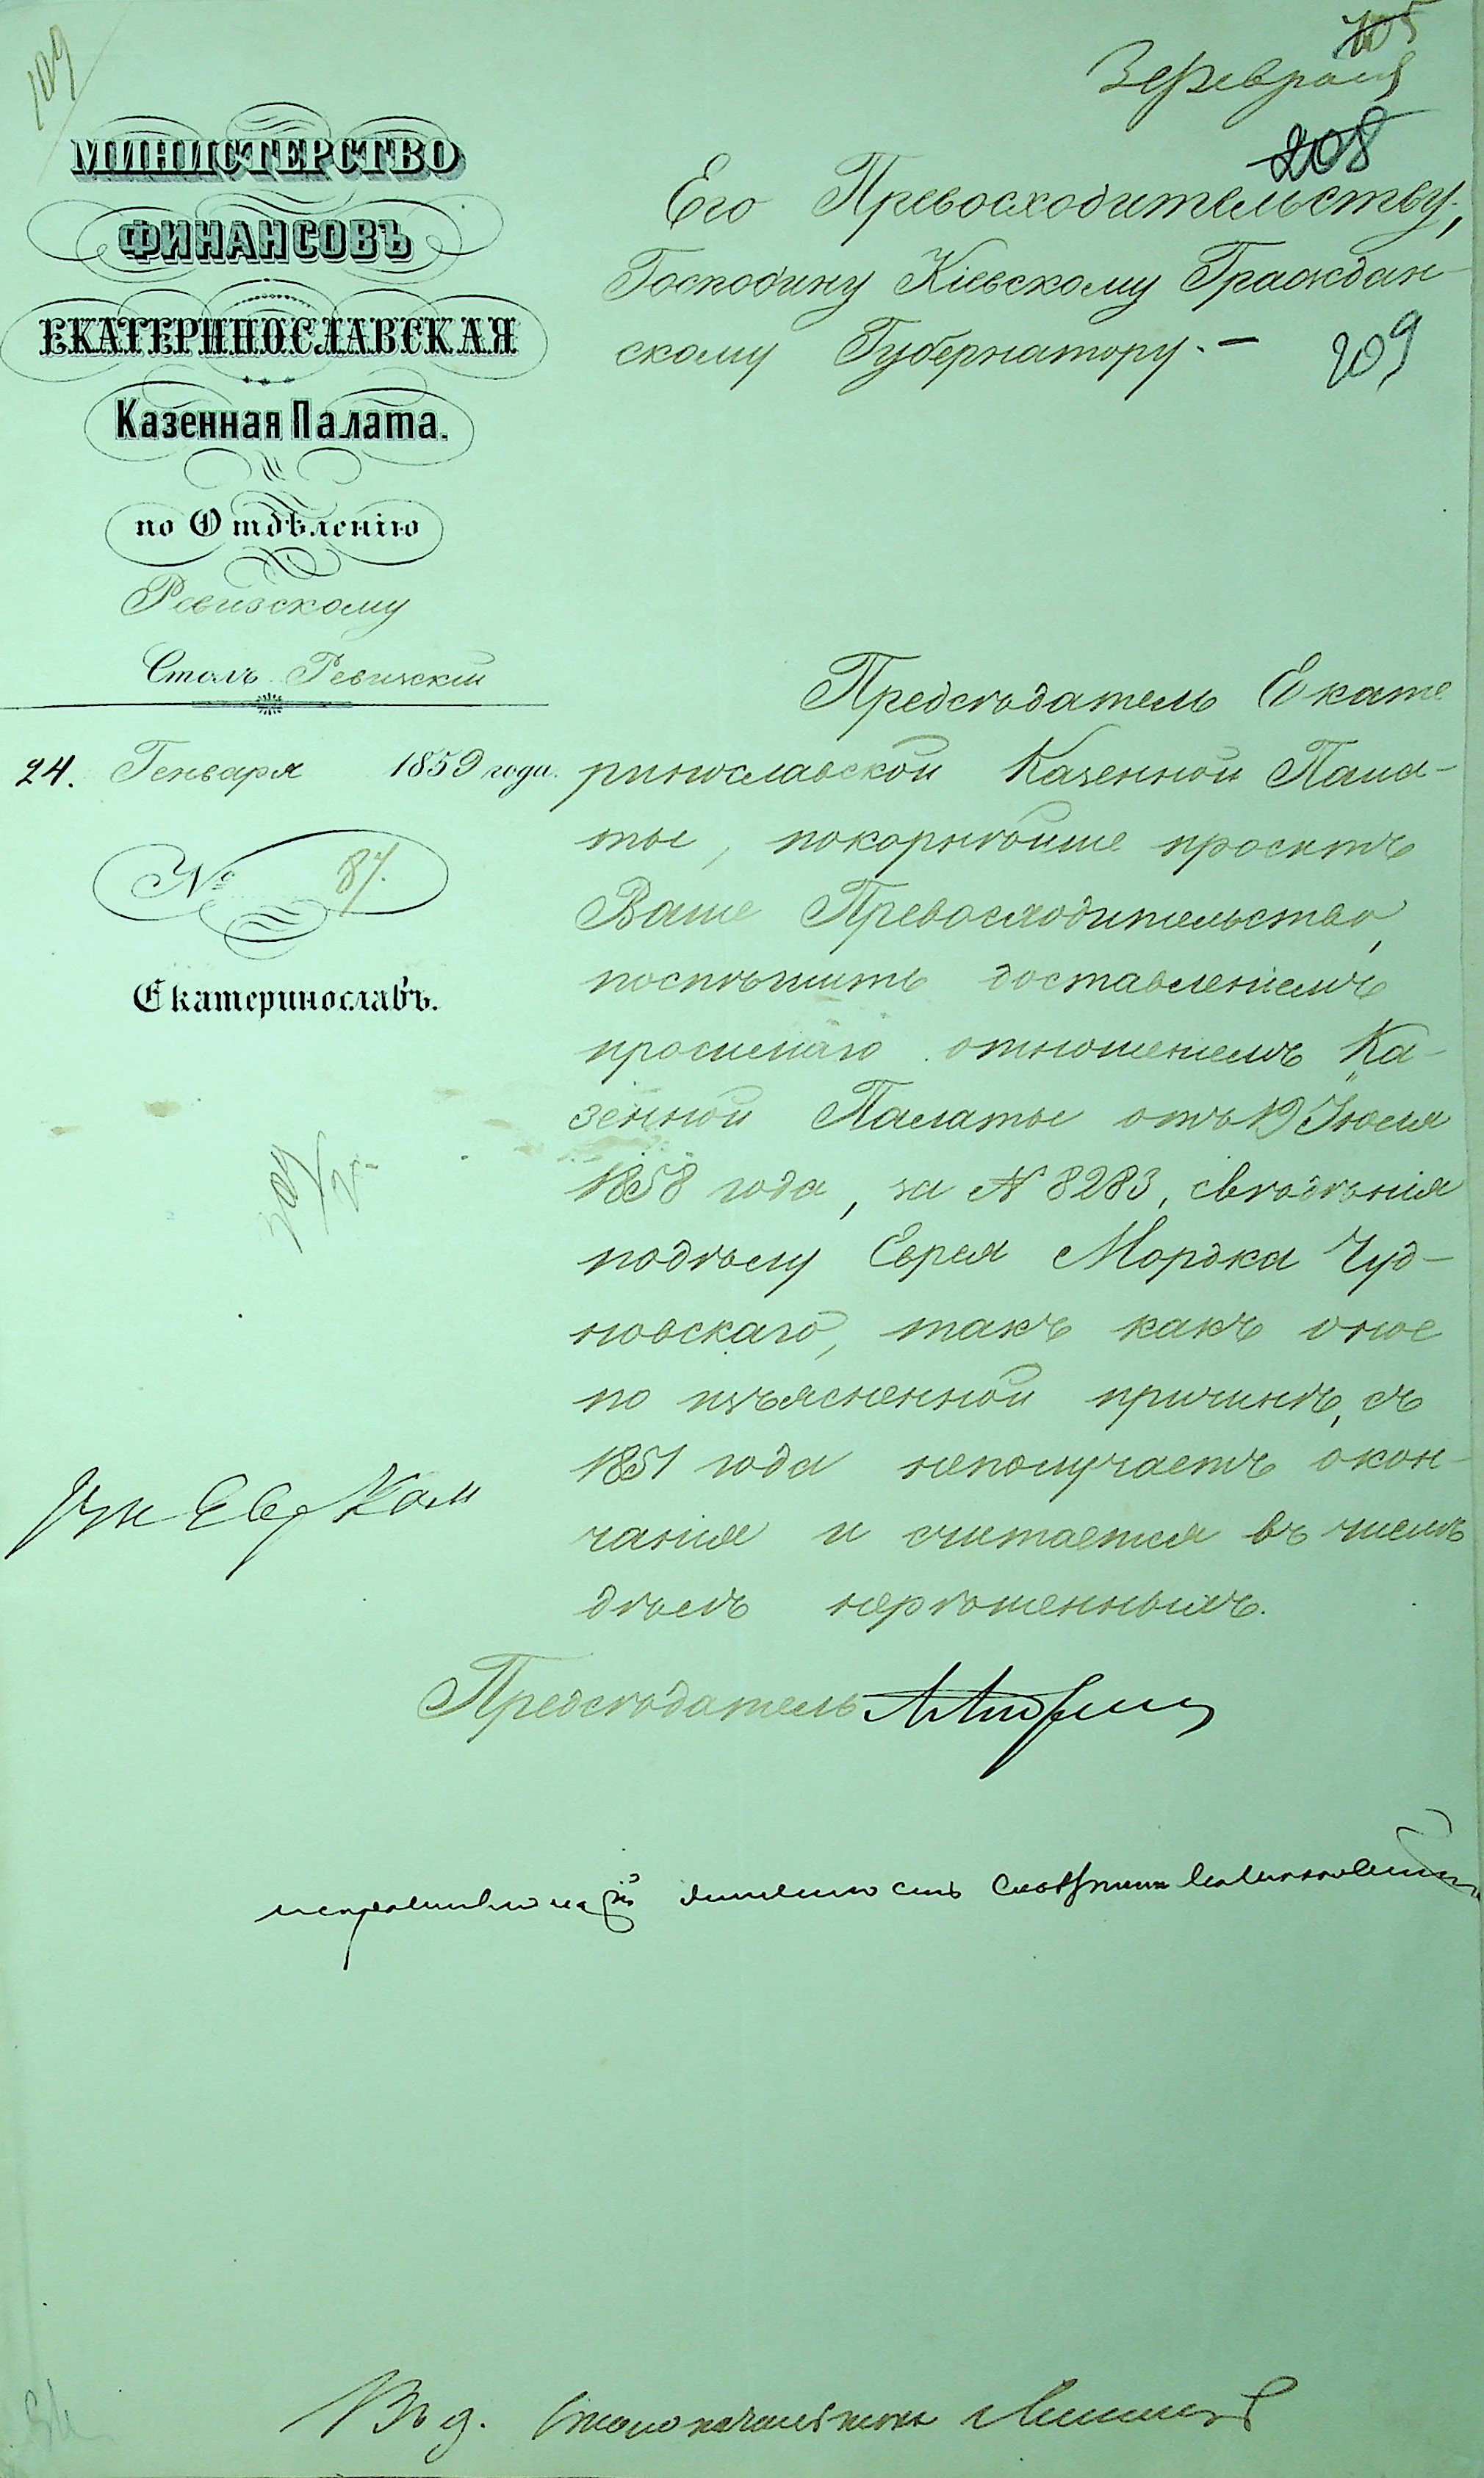 109
105
3 февраля
208
МИНИСТЕРСТВО
ФИНАНСОВЪ
ЕКАТЕРИНОСЛАВСКАЯ
Казенная Палата.
по Отдѣленію
Ревизскому
Столъ Ревизскій
24. Генваря 1859 года.
№ 87.
Екатеринославъ.
Его Превосходительству,
Господину Кіевскому Граждан-
скому Губернатору. —
209
Предсѣдатель Екате
ринославской Казенной Пала-
ты, покорнѣйше проситъ
Ваше Превосходительство,
поспѣшить доставленіемъ
просимаго отношеніемъ Ка-
зенной Палаты отъ 19 Іюля
1858 года, за № 8283, свѣдѣнія
по дѣлу Еврея Мордка Чуд-
новскаго, такъ какъ оное
по изъясненной причинѣ, съ
1851 года неполучаетъ окон-
чанія и считается въ числѣ
дѣлъ нерѣшенныхъ.
Предсѣдатель
Столоначальника